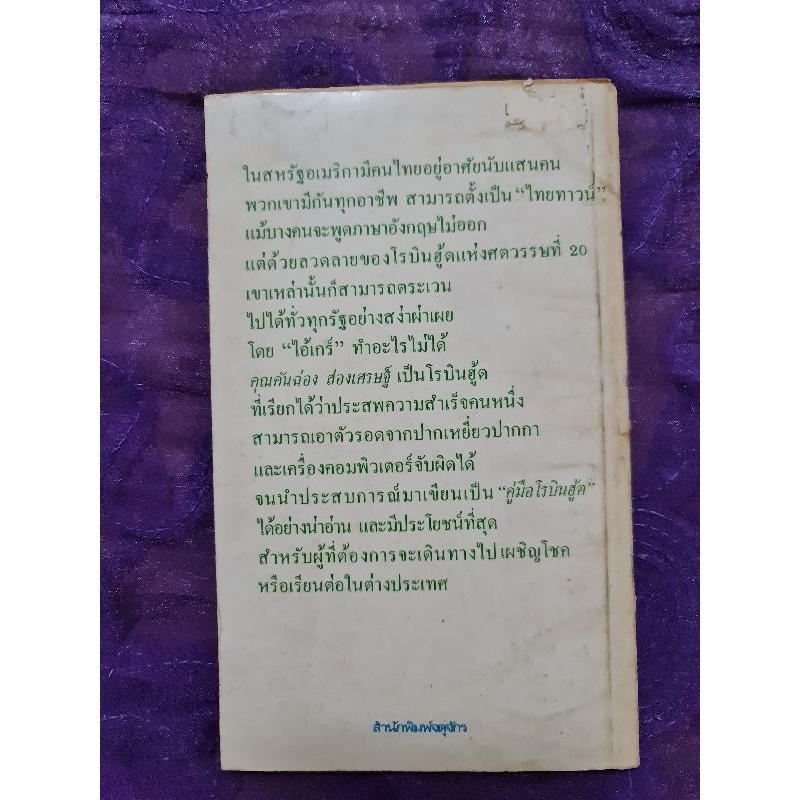 ในสหรัฐอเมริกามีคนไทยอยู่อาศัยนับแสนคน
พวกเขามีกันทุกอาชีพ สามารถตั้งเป็น “ไทยทาวน์”
แม้บางคนจะพูดภาษาอังกฤษไม่ออก
แต่ด้วยลวดลายของโรบินฮู้ดแห่งศตวรรษที่ 20
เขาเหล่านั้นก็สามารถตระเวน
ไปได้ทั่วทุกรัฐอย่างสง่าผ่าเผย
โดย “ไอ้เกร์” ทำอะไรไม่ได้
คุณคันฉ่อง ส่องเศรษฐ์ เป็นโรบินฮู้ด
ที่เรียกได้ว่าประสพความสำเร็จคนหนึ่ง
สามารถเอาตัวรอดจากปากเหยี่ยวปากกา
และเครื่องคอมพิวเตอร์จับผิดได้
จนนำประสบการณ์มาเขียนเป็น “คู่มือโรบินฮู้ด”
ได้อย่างน่าอ่าน และมีประโยชน์ที่สุด
สำหรับผู้ที่ต้องการจะเดินทางไปเผชิญโชค
หรือเรียนต่อในต่างประเทศ
สำนักพิมพ์จตุจักร